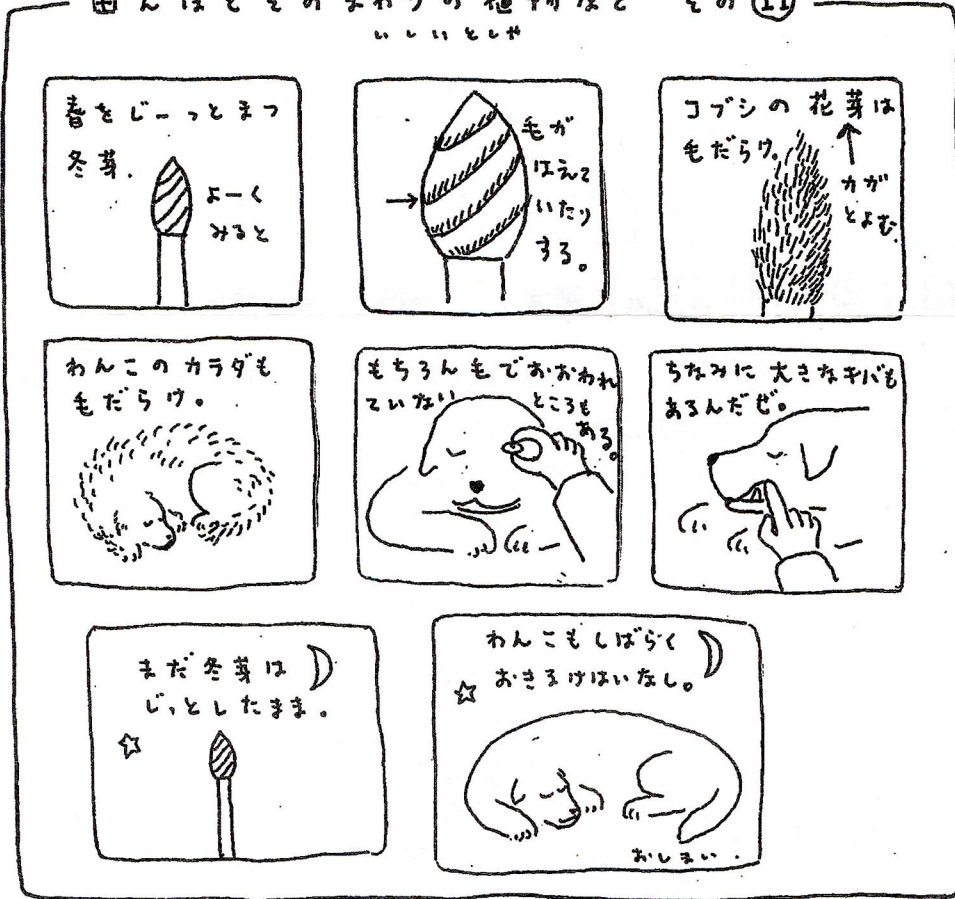 田んぼとそのまわりの植物など その⑪
いしいとしや
春をじーっとまつ
冬芽.
よーく
みると
毛が
はえて
いたり
する。
コブシの花芽は
毛だらけ。
カガ
とよむ.
わんこのカラダも
毛だらけ。
もちろん毛でおおわれ
ていない ところも
ある。
ちなみに大きなキバも
あるんだぜ。
まだ冬芽は
じっとしたまま.
わんこもしばらく
おきるけはいなし。
おしまい.